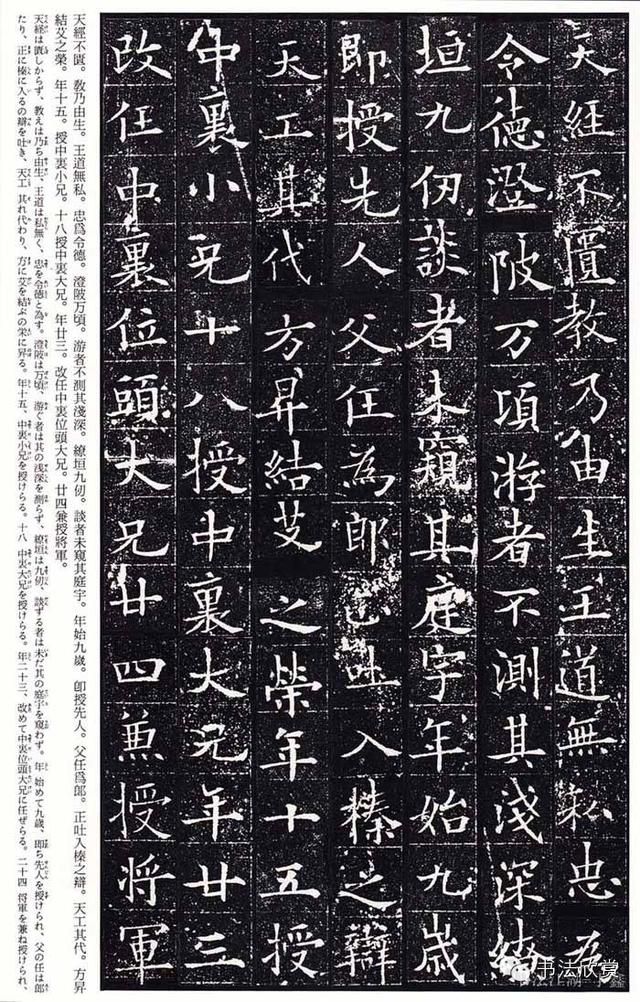 天經不匱教乃由生王道無私忠為
令德澄陂万頃游者不測其淺深繚
垣九仞談者未窺其庭宇年始九歲
即授先人父任為郎正吐入榛之辯
天工其代方昇結艾之榮年十五授
中裏小兄十八授中裏大兄年廿三
改任中裏位頭大兄廿四兼授將軍
天經不匱。敎乃由生。王道無私。忠爲令德。澄陂万頃。游者不測其淺深。繚垣九仞。談者未窺其庭宇。年始九歲。卽授先人。父任爲郎。正吐入榛之辯。天工其代。方昇
結艾之榮。年十五。授中裏小兄。十八授中裏大兄。年廿三。改任中裏位頭大兄。廿四兼授將軍。
天経は匱しからず、教えは乃ち由生、王道は私無く、忠を令徳と為す。澄陂は万頃、游ぐ者は其の浅深を測らず、繚垣は九仞、談ずる者は未だ其の庭宇を窺わず。年 始めて九歳、即ち先人を授けられ、父の任は郎
たり、正に榛に入るの辯を吐き、天工 其れ代わり、方に艾を結ぶの栄に昇る。年十五、中裏小兄を授けらる。十八 中裏大兄を授けらる。年二十三、改めて中裏位頭大兄に任ぜらる。二十四 将軍を兼ね授けられ、
书法欣赏